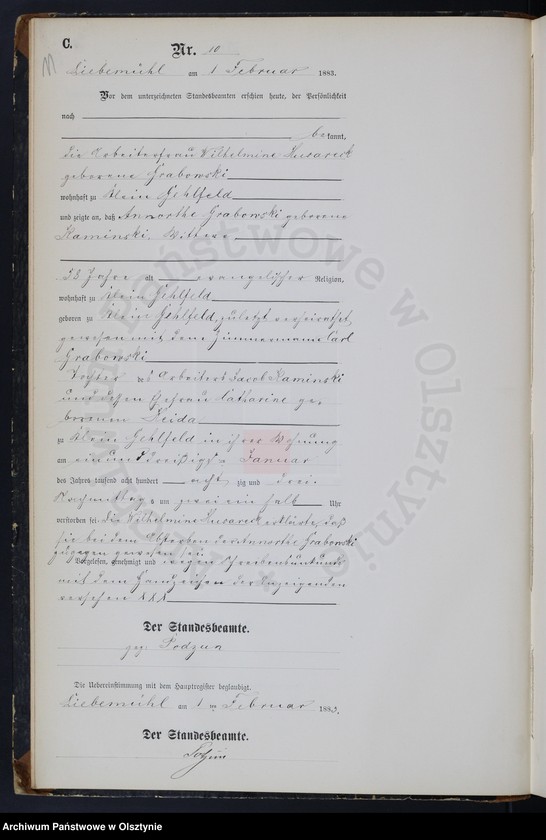 C.
Nr. 10
Liebemühl am 1 Februar 1883.
Vor dem unterzeichneten Standesbeamten erschien heute, der Persönlichkeit
nach
bekannt,
die Arbeiterfrau Wilhelmine
geborene Grabowski
wohnhaft zu Klein Gehlfeld
und zeigte an, daß Annorthe Grabowski geborene
Kaminski, Wittwe
Jahre alt evangelischer Religion,
wohnhaft zu Klein Gehlfeld
geboren zu Klein Gehlfeld, zuletzt verheirathet
gewesen mit dem Zimmermann Carl
Grabowski
Tochter des Arbeiters Jacob Kaminski
und dessen Ehefrau Catharine ge-
borenen
zu Klein Gehlfeld in ihrer Wohnung
am einunddreißigsten Januar
des Jahres tausend acht hundert achtzig und drei
Nachmittags um zwei ein halb Uhr
verstorben sei. Die Wilhelmine erklärte, daß
sie bei dem Absterben der Annorthe Grabowski
zugegen gewesen sei.
Vorgelesen, genehmigt und wegen Schreibensunkunde
mit dem Handzeichen der Anzeigenden
versehen XXX
Der Standesbeamte.
gez. Podzun
Die Uebereinstimmung mit dem Hauptregister beglaubigt.
Liebemühl am 1 ten Februar 1883.
Der Standesbeamte.
Archiwum Państwowe w Olsztynie
Archiwum Państwowe w Olsztynie